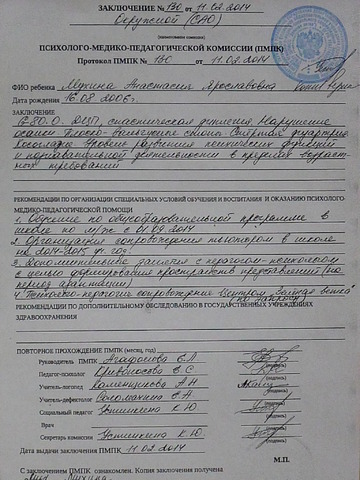 ЗАКЛЮЧЕНИЕ № 130 от 11.02.2014
Окружной (САО)
(наименование комиссии)
ПСИХОЛОГО-МЕДИКО-ПЕДАГОГИЧЕСКОЙ КОМИССИИ (ПМПК)
Протокол ПМПК № 130 от 11.02.2014
ФИО ребенка Мухина Анастасия Ярославовна
Дата рождения 16.08 2006г.
ЗАКЛЮЧЕНИЕ
ДЦП, спастическая диплегия Нарушение
осанки Плоско-вальгусные стопы
уровне развития психических функций
и познавательной деятельности в пределах возраст-
ных требований
РЕКОМЕНДАЦИИ ПО ОРГАНИЗАЦИИ СПЕЦИАЛЬНЫХ УСЛОВИЙ ОБУЧЕНИЯ И ВОСПИТАНИЯ И ОКАЗАНИЮ ПСИХОЛОГО-
МЕДИКО-ПЕДАГОГИЧЕСКОЙ ПОМОЩИ
1. Обучение по общеобразовательной программе в
школе по м/ж. с 01.09.2014
2. Организация сопровождения тьютором в школе
на 2014-2015 уч. год.
3. Дополнительные занятия с педагогом-психологом
с целью формирования пространств представлений (на
период адаптации)
4. Психолого-педагогич сопровождение
(по запросу)
РЕКОМЕНДАЦИИ ПО ДОПОЛНИТЕЛЬНОМУ ОБСЛЕДОВАНИЮ В ГОСУДАРСТВЕННЫХ УЧРЕЖДЕНИЯХ
ЗДРАВООХРАНЕНИЯ
ПОВТОРНОЕ ПРОХОЖДЕНИЕ ПМПК (месяц, год)
Руководитель ПМПК Агафонова Е.Л.
(подпись)
Педагог-психолог Кривоносова Е.С.
(подпись)
Учитель-логопед Каменщикова А.Н
(подпись)
Учитель-дефектолог Соломахина Е А
(подпись)
Социальный педагог К.Ю.
(подпись)
Врач
(подпись)
Секретарь комиссии К.Ю.
(подпись)
Дата выдачи заключения ПМПК 11.02 2014
М.П.
С заключением ПМПК ознакомлен. Копия заключения получена
Мухина